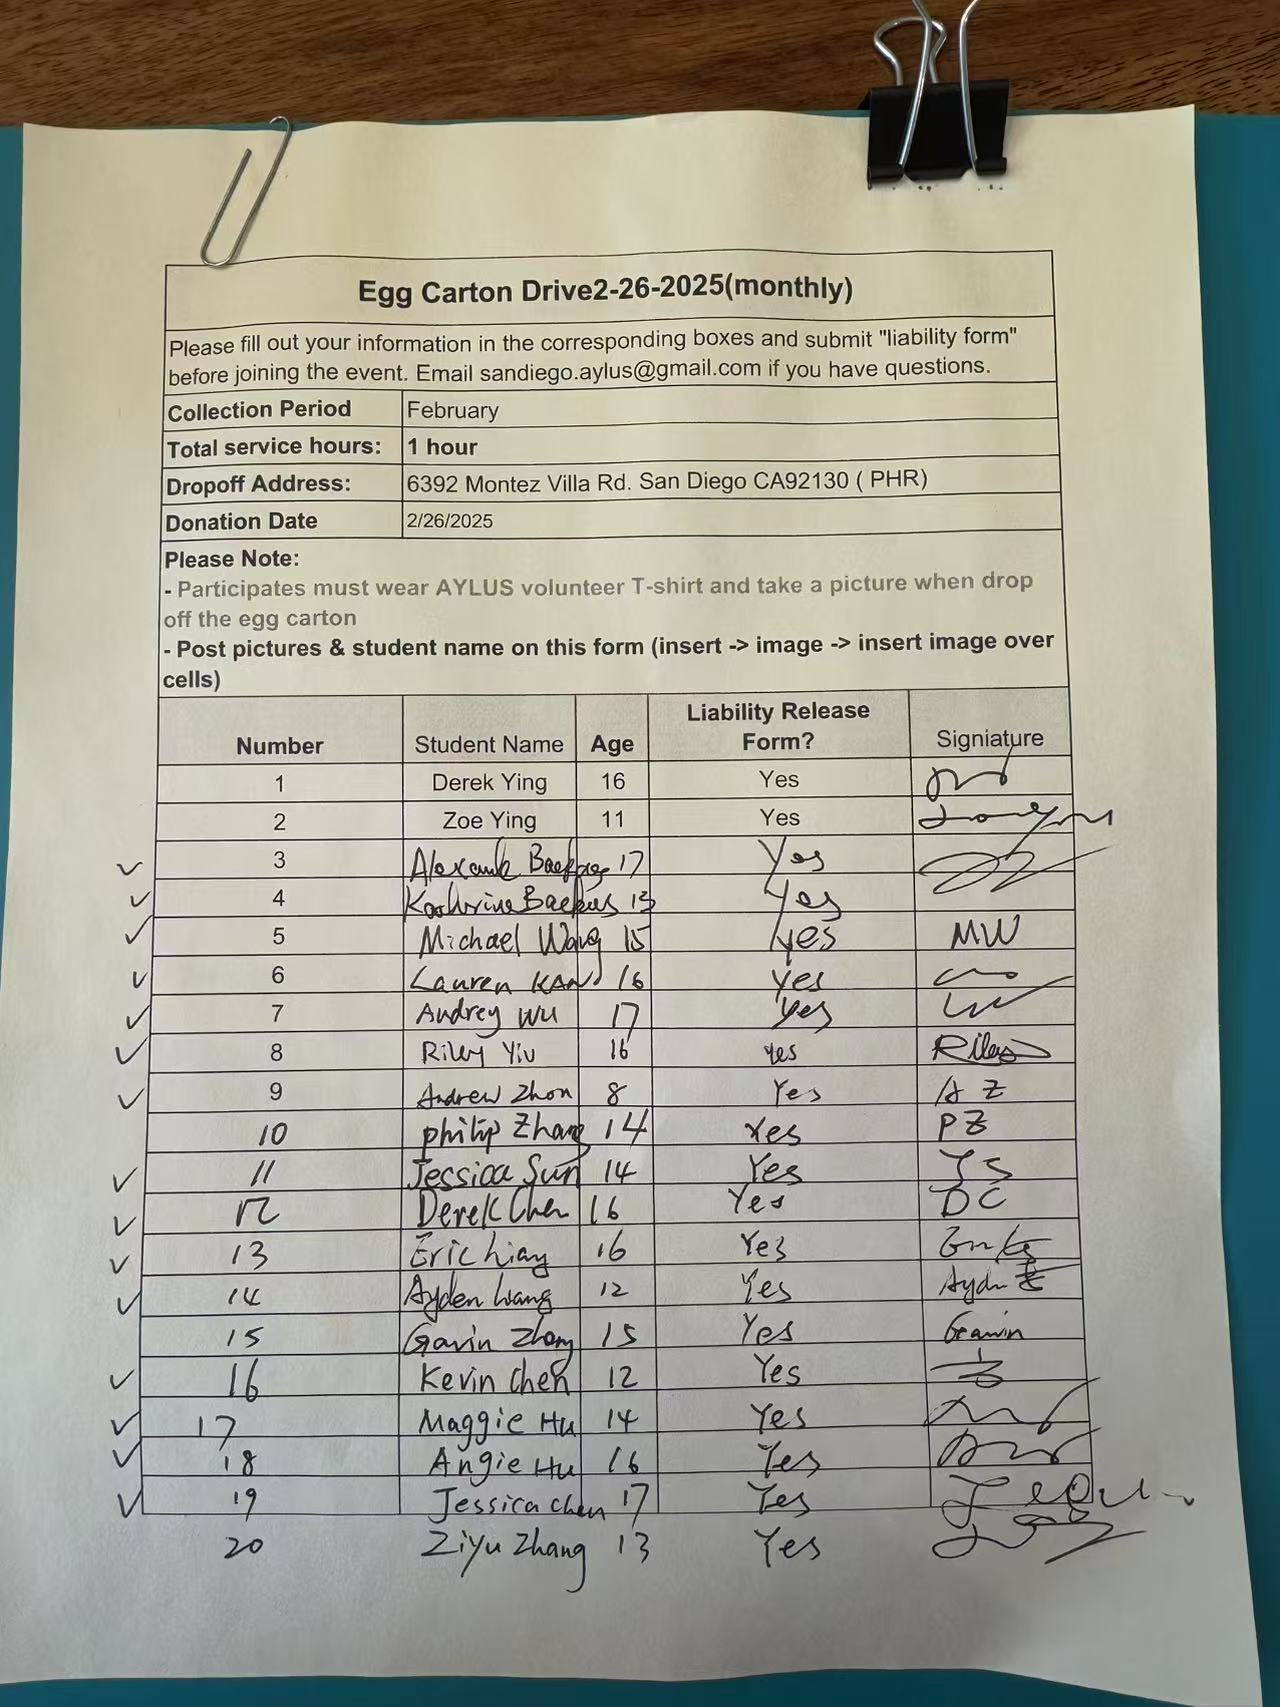 Egg Carton Drive2-26-2025(monthly)
Please fill out your information in the corresponding boxes and submit "liability form"
before joining the event. Email sandiego.aylus@gmail.com if you have questions.
Collection Period February
Total service hours: 1 hour
Dropoff Address: 6392 Montez Villa Rd. San Diego CA92130 ( PHR)
Donation Date 2/26/2025
Please Note:
- Participates must wear AYLUS volunteer T-shirt and take a picture when drop
off the egg carton
- Post pictures & student name on this form (insert -> image -> insert image over
cells)
Number Student Name Age Liability Release Form? Signiature
1 Derek Ying 16 Yes
2 Zoe Ying 11 Yes
3 17 Yes
4 13 Yes
5 Michael Wang 15 yes MW
6 Lauren 16 yes
7 Audrey Wu 17 yes
8 Riley Yiu 16 yes Riley
9 Andrew Zhou 8 Yes A Z
10 philip Zhang 14 Yes PZ
11 Jessica Sun 14 Yes JS
12 Derek Chen 16 Yes DC
13 Eric Liang 16 Yes
14 Ayden 12 Yes
15 Gavin 15 Yes Gavin
16 Kevin Chen 12 Yes
17 Maggie Hu 14 Yes
18 Angie Hu 16 Yes
19 Jessica Chen 17 Yes
20 Ziyu Zhang 13 Yes